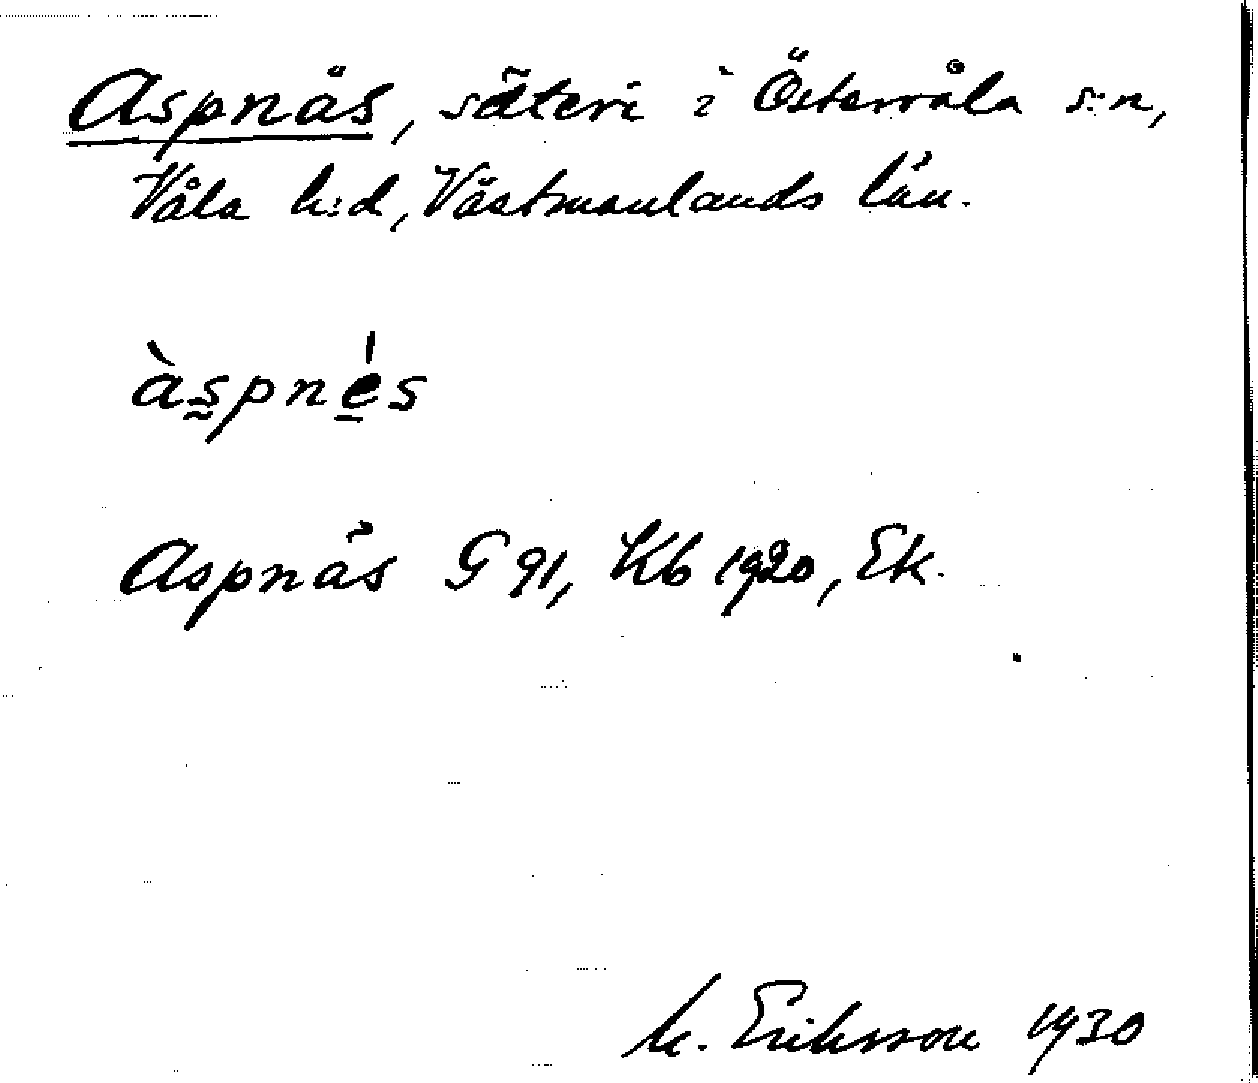 Aspnäs, säteri i Östervåla s:n,
Våla h:d, Västmanlands län.
àspnés
Aspnäs G 91, Kb 1920, Ek.
M. Eriksson 1930